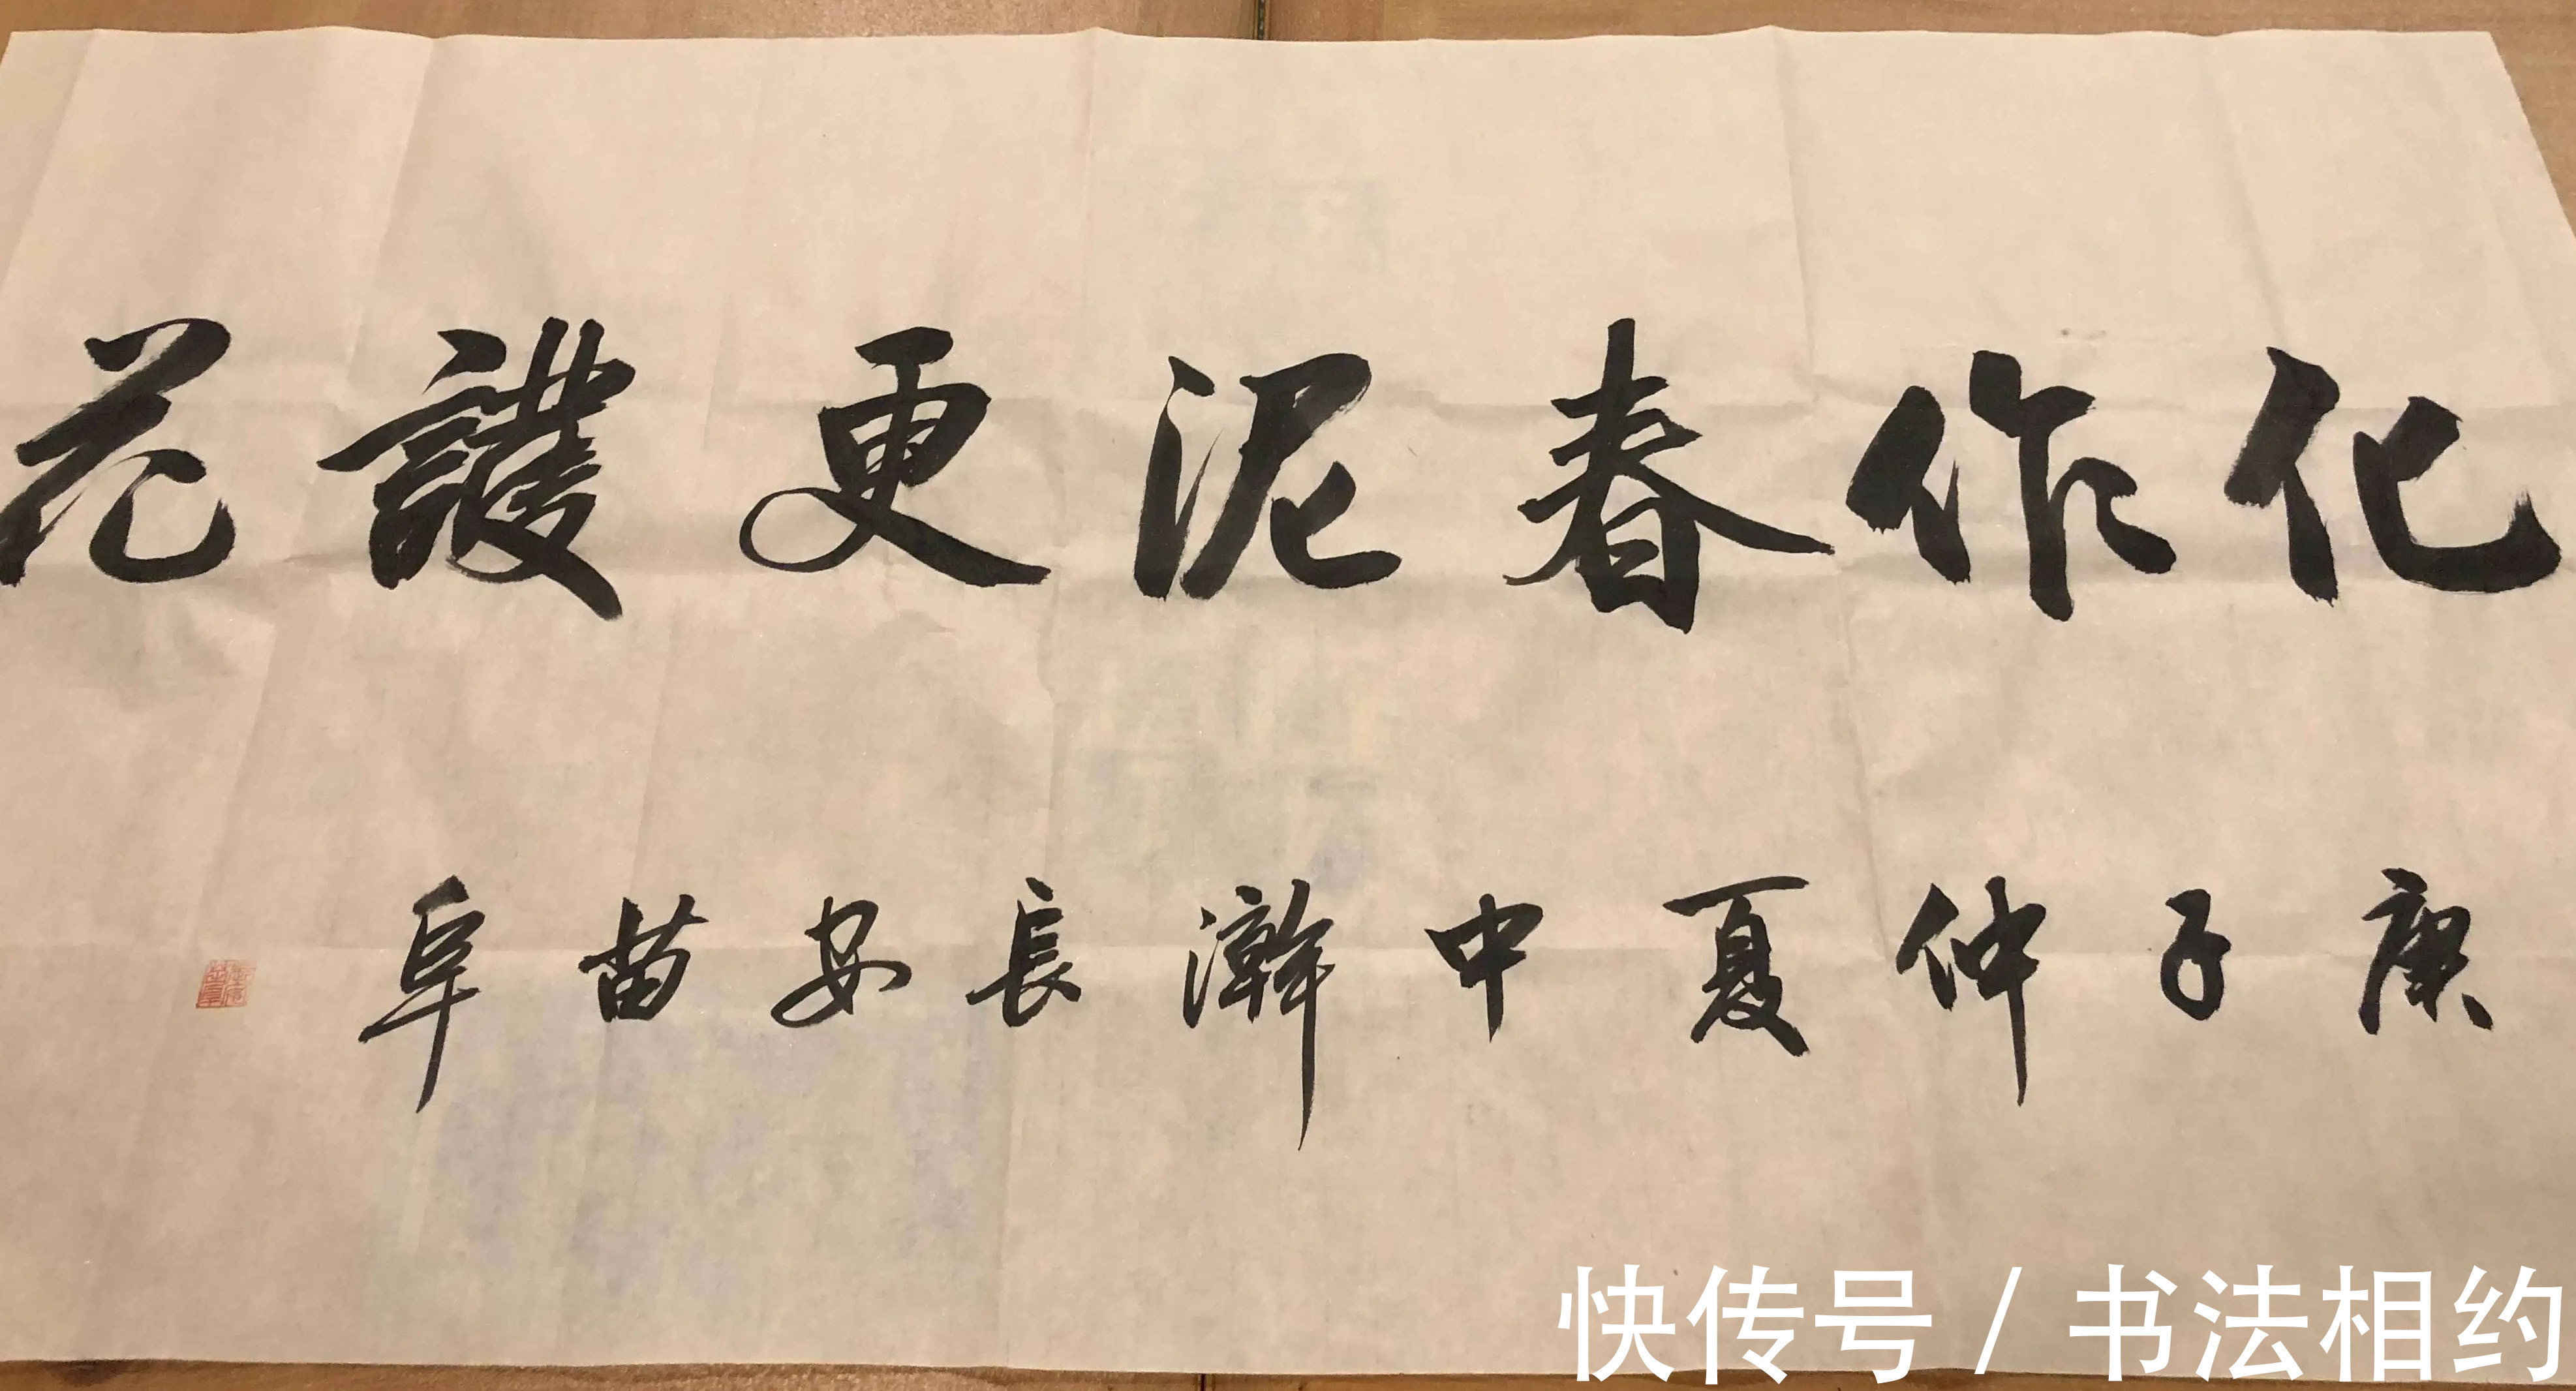 化作春泥更護花
庚子仲夏中澣長安苗阜
快传号 / 书法相约